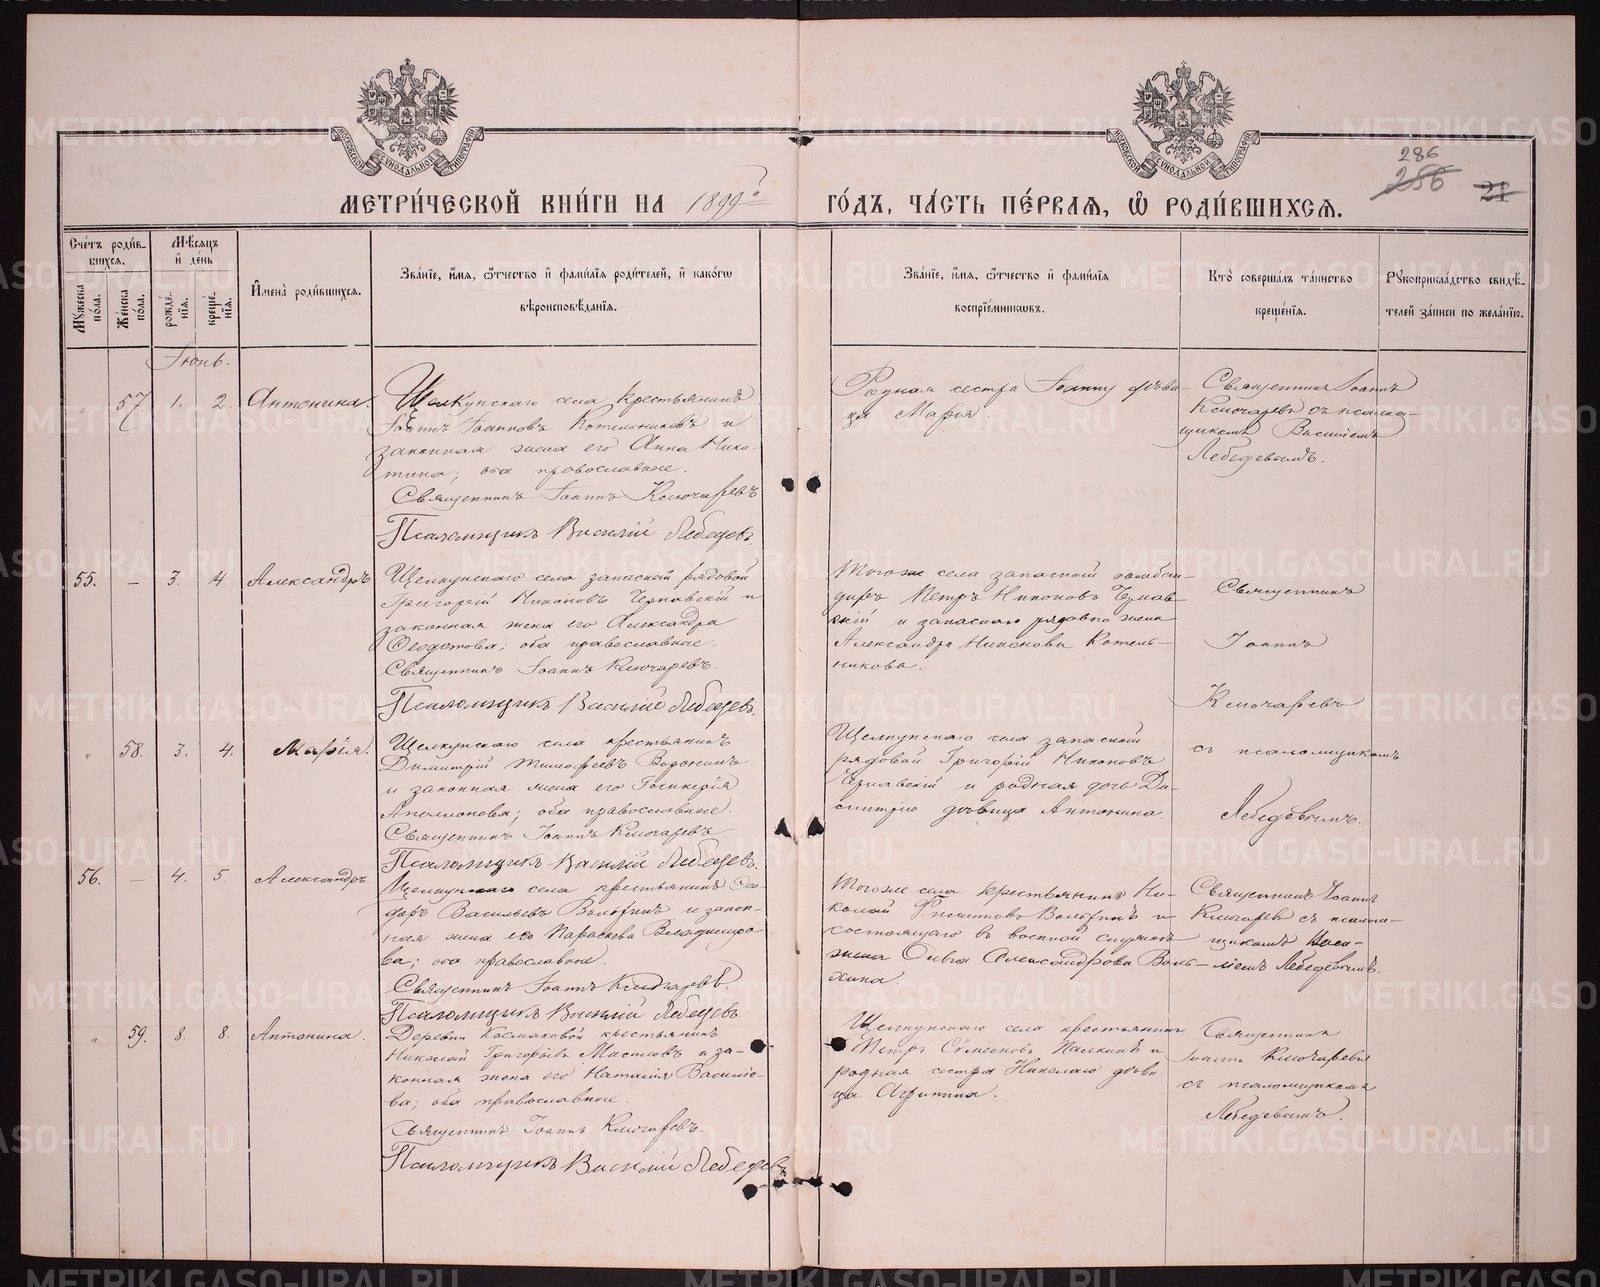 METRIKI.GASO-URAL.RU
286
256
21
МЕТРИ́ЧЕСКОЙ КНИ́ГИ НА 1899й ГО́ДЪ, ЧА́СТЬ ПЕ́РВАѦ, Ѡ РОДИ́ВШИХСѦ.
Сче́тъ роди́в-
шихся.
Мꙋжеска по́ла.
Же́нска по́ла.
Мѣ́сяцъ
и҆ де́нь
рожде́-
нїя.
креще́-
нїя.
И҆мена̀ роди́вшихся.
Зва́нїе, и҆́мя, ѻ҆́тчество и҆ фами́лїя роди́телей, и҆ како́гѡ
вѣроисповѣ́данїя.
Зва́нїе, и҆́мя, ѻ҆́тчество и҆ фами́лїя
воспрїе́мникѡвъ.
Кто̀ соверша́лъ та́инство
креще́нїя.
Рꙋкоприкла́дство свидѣ́-
телей за́писи по жела́нїю.
Іюнь.
" 57. 1. 2. Антонина.
Щелкунскаго села крестьянинъ
Іоаннъ Іоанновъ Котельниковъ и
законная жена его Анна Ники-
тина; оба православные.
Священникъ Іоаннъ Ключаревъ
Псаломщикъ Василій Лебедевъ.
Родная сестра Іоанну дѣви-
ца Марія.
Священникъ Іоаннъ
Ключаревъ съ псалом-
щикомъ Василіемъ
Лебедевымъ.
55. – 3. 4. Александръ
Щелкунскаго села запасной рядовой
Григорій Никоновъ Чернавскій и
законная жена его Александра
Ѳеодотова; оба православные.
Священникъ Іоаннъ Ключаревъ.
Псаломщикъ Василій Лебедевъ.
Тогоже села запасной бомбан-
диръ Петръ Никоновъ Чернав-
скій и запаснаго рядового жена
Александра Никонова Котель-
никова.
Священникъ
Іоаннъ
Ключаревъ
" 58. 3. 4. Марія.
Щелкунскаго села крестьянинъ
Димитрій Тимофеевъ Воронинъ
и законная жена его Гликерія
Аполлонова; оба православные.
Священникъ Іоаннъ Ключаревъ
Псаломщикъ Василій Лебедевъ.
Щелкунскаго села запасной
рядовой Григорій Никоновъ
Чернавскій и родная дочь Ди-
митрію дѣвица Антонина.
съ псаломщикомъ
Лебедевымъ.
56. – 4. 5. Александръ.
Щелкунскаго села крестьянинъ Ѳео-
доръ Васильевъ Волохинъ и закон-
ная жена его Параскева Владимиро-
ва; оба православные.
Священникъ Іоаннъ Ключаревъ.
Псаломщикъ Василій Лебедевъ.
Тогоже села крестьянинъ Ни-
колай Филипповъ Волохинъ и
состоящаго въ военной службѣ
жена Ольга Александрова Воло-
хина.
Священникъ Іоаннъ
Ключаревъ съ псалом-
щикомъ Васи-
ліемъ Лебедевымъ.
" 59. 8. 8. Антонина.
Деревни Космаковой крестьянинъ
Николай Григорьевъ Масловъ и за-
конная жена его Наталія Василье-
ва; оба православные.
Священникъ Іоаннъ Ключаревъ.
Псаломщикъ Василій Лебедевъ
Щелкунскаго села крестьянинъ
Петръ Сѵмеоновъ Палкинъ и
родная сестра Николаю дѣви-
ца Агрипина.
Священникъ
Іоаннъ Ключаревъ
съ псаломщикомъ
Лебедевымъ.